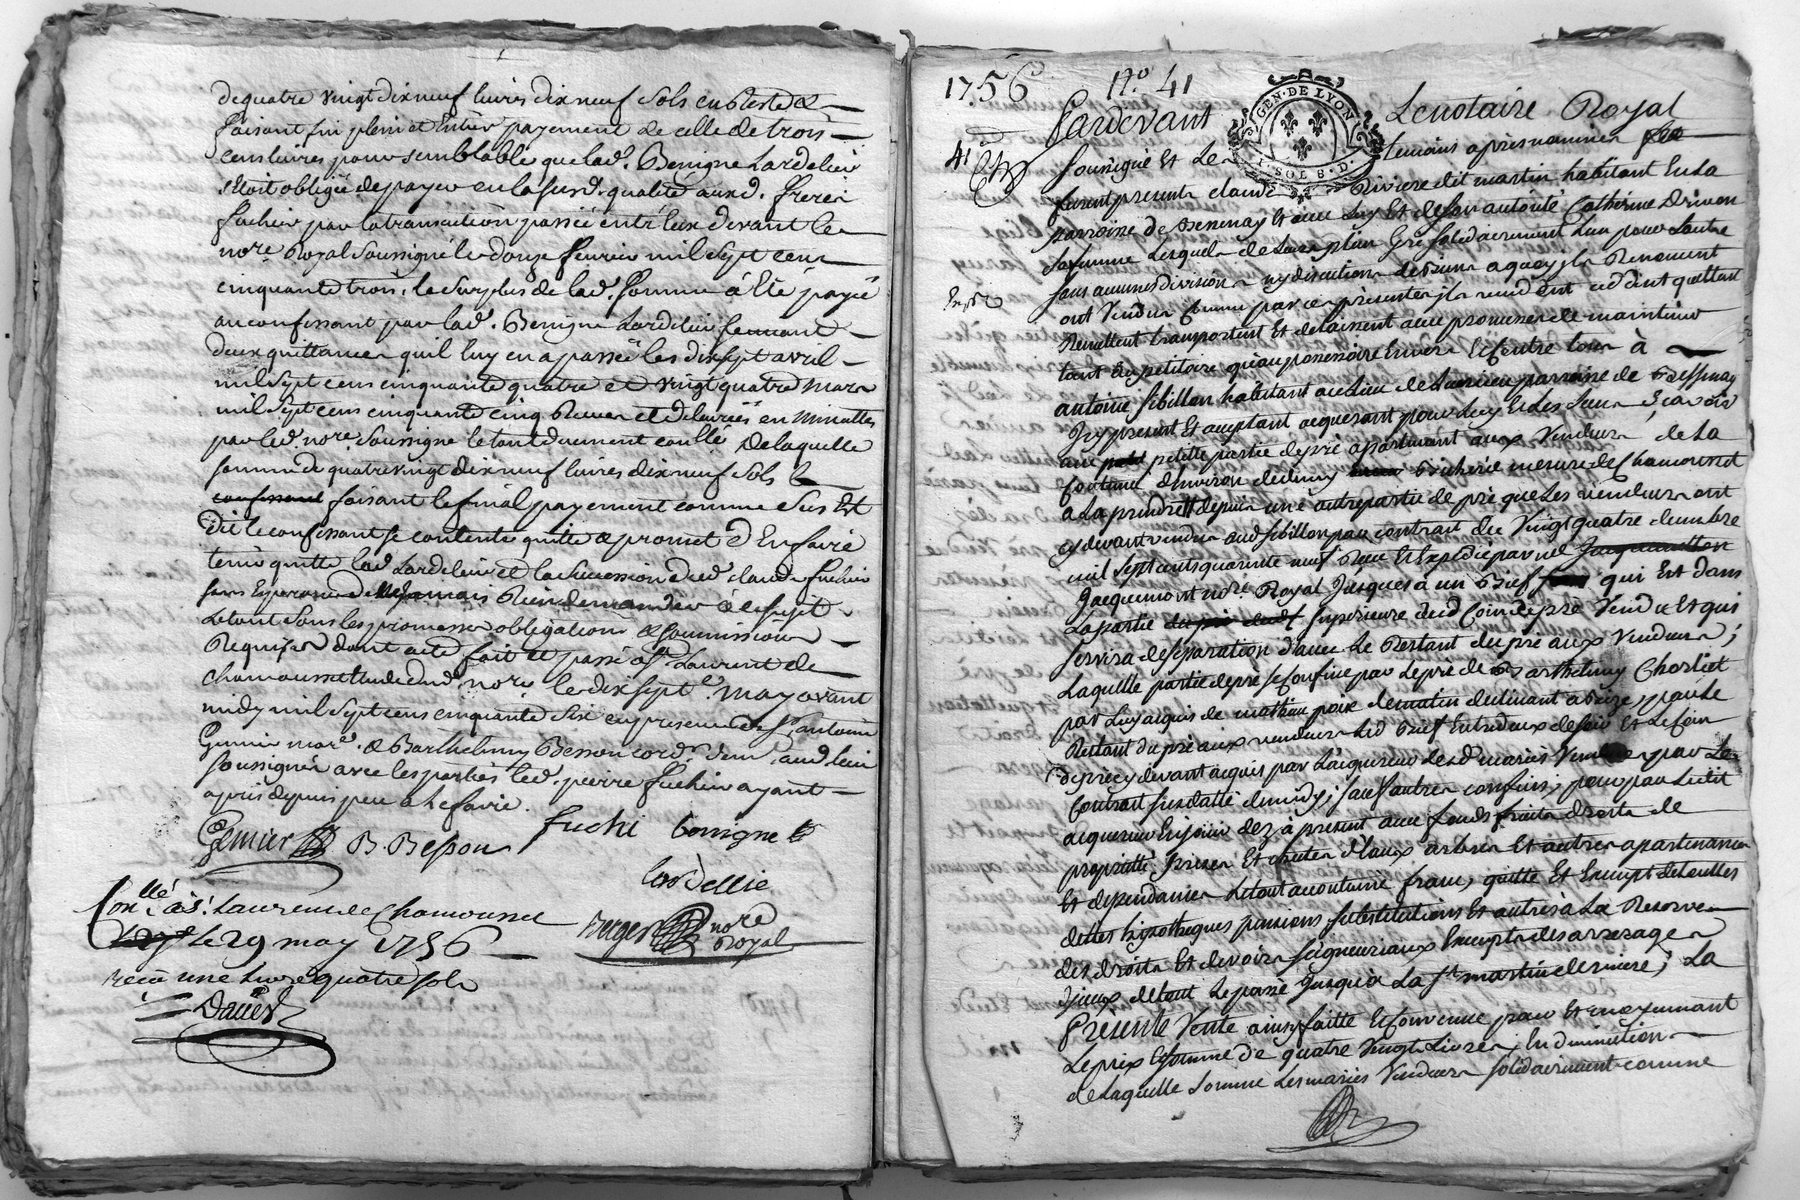 de quatre vingt dix neuf livres dix neuf sols en Reste &
faisant fin plein et Entier payement de celle de trois
cens livres pour semblable que lad. Benigne Lardelier
s'etoit obligée de payer en lasusd. qualité auxd. freres
fuchier par la transaction passée entr'eux devant le
nore Royal Soussigné le douze fevrier mil sept cens
cinquante trois, le surplus de lad. somme a Eté payé
au confissant par lad. Benigne Lardelier suivant
deux quittances qu'il luy en a passées les dix sept avril
mil sept cens cinquante quatre et vingt quatre mars
mil sept cens cinquante cinq Reçues et delivrées en Minuttes
par led. nore Soussigné le tout duement conllé De laquelle
somme de quatre vingt dix neuf livres dix neuf sols le
confissant faisant le final payement comme Sus Est
Dit le confissant se contente quitte & promet d'En faire
tenir quitte lad. Lardelier et la succession dud. claude fuchier
sans Esperance de jamais Rien demander à ce sujet
Le tout sous les promesses obligations & soumissions
Requises dont acte fait et passé a St Laurent de
chamousset Etude dud. nore le dix sept e may avant
midy mil sept cens cinquante six en presence de Sr. antoine
Grenier mare. & Barthelemy Besson cord. dem. aud. lieu
soussignés avec les parties led. pierre fuchier ayant
apris depuis peu a le faire.
Grenier B Besson fuchi benigne
lardellie
Conllé à St. Laurent de Chamousset
Le 29 may 1756
reçu une livre quatre sols
nore Royal
1756 No. 41
GEN. DE LYON
SOLS
Pardevant Le notaire Royal
41e
soussigné Et Les temoins apres nommés
furent presents claude Riviere dit martin habitant En la
parroisse de Bessenay Et avec luy Et de son autorité Catherine
sa femme Lesquels de leurs plein Gré solidairement L'un pour L'autre
sans aucune division ny discution de Biens a quoy ils Renoncent
Expée
ont Vendu Comme par ces presentes ils vendent cedent quittent
Remettent transportent Et delaissent avec promesse de maintenir
tant au petitoire qu'au possessoire Envers Et Contre tous à
antoine sibillon habitant au Lieu de parroisse de Bessenay
Icy present Et acceptant acquerant pour luy Et Les siens Sçavoir
une petitte partie de pré apartenant aux Vendeurs de La
Contenue d'Environ demy Bicherée mesure de Chamousset
a La prendre depuis une autre partie de pré que Les vendeurs ont
cy devant vendu aud. sibillon par contrat du Vingt quatre decembre
mil sept cents quarante neuf Reçu Et Expedié par me
Jacquemont nore Royal jusques à un Bief qui Est dans
La partie superieure dud. Coin de pré Vendu Et qui
servira de separation d'avec Le Restant du pré aux Vendeurs;
Laquelle partie de pré se Confine par Le pré de Barthelemy Charliet
par Luy acquis de matin declinant a bize, par Le
Restant du pré aux vendeurs Led. Bief Entredeux de soir Et Le Coin
de pré cy devant acquis par L'acquereur desd. mariés par Le
Contrat susdatté de midy; sauf autres confins; pour par Ledit
acquereur En jouir dez à present avec fonds fruits droits de
proprieté prises Et chutes d'eaux arbres Et autres apartenances
Et dependances Le tout accoutumé franc, quitte Et Exempt de touttes
dettes hipotheques pensions substitutions Et autres à La Reserve
des droits Et devoirs seigneuriaux Exempts des arrerages
d'jceux de tout Le passé jusqu'à La St martin derniere; La
Presente Vente ainsy faitte Et Convenue pour Et moyennant
Le prix Et somme de quatre Vingt Livres, En diminution
de Laquelle somme Les mariés Vendeurs solidairement comme